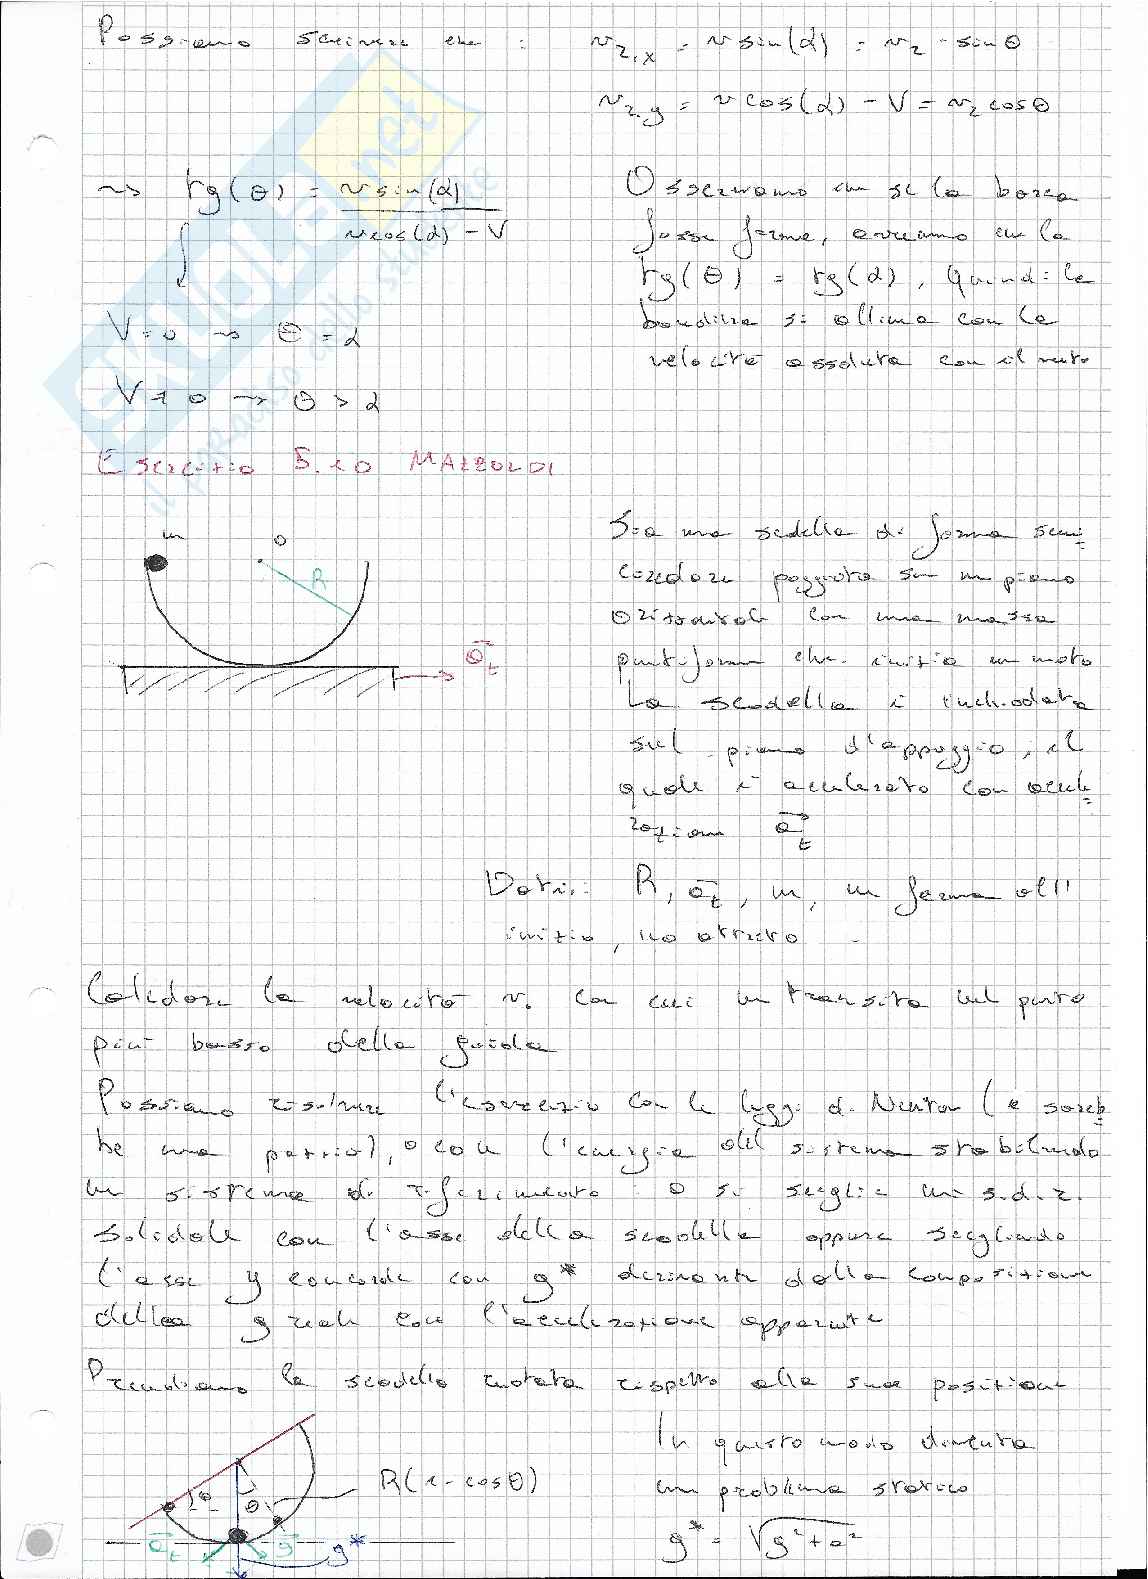 Possiamo scrivere che : v₂,ₓ = v sin(α) = v₂ · sinθ
v₂,y = v cos(α) - V = v₂ cosθ
~> tg(θ) = v sin(α) / v cos(α) - V
V=0 ~> θ = α
V≠0 ~> θ > α
Osserviamo che se la barca
fosse ferma, avremmo che la
tg(θ) = tg(α), quindi la
bandiera si allinea con la
velocità assoluta con il vento
Esercizio 5.10 MAZZOLDI
m O
R
a⃗t
Sia una scodella di forma semi
circolare poggiata su un piano
orizzontale con una massa
puntiforme che inizia un moto
La scodella è inchiodata
sul piano d'appoggio, il
quale è accelerato con accele
razione a⃗t
Dati: R, a⃗t, m, m ferma all'
inizio, no attrito
Calcolare la velocità v. con cui m transita nel punto
più basso della guida
Possiamo risolvere l'esercizio con le leggi di Newton (e sareb
be una pazzia), o con l'energia del sistema stabilendo
un sistema di riferimento: o si sceglie un s.d.r.
solidale con l'asse della scodella oppure scegliendo
l'asse y concorde con g* derivante dalla composizione
della g reale con l'accelerazione apparente
Prendiamo la scodella ruotata rispetto alla sua posizione
In questo modo diventa
un problema statico
g* = √g²+a²
R(1-cosθ)
θ θ
a⃗t g⃗ g*
SKUOLA.net
il paradiso dello studente